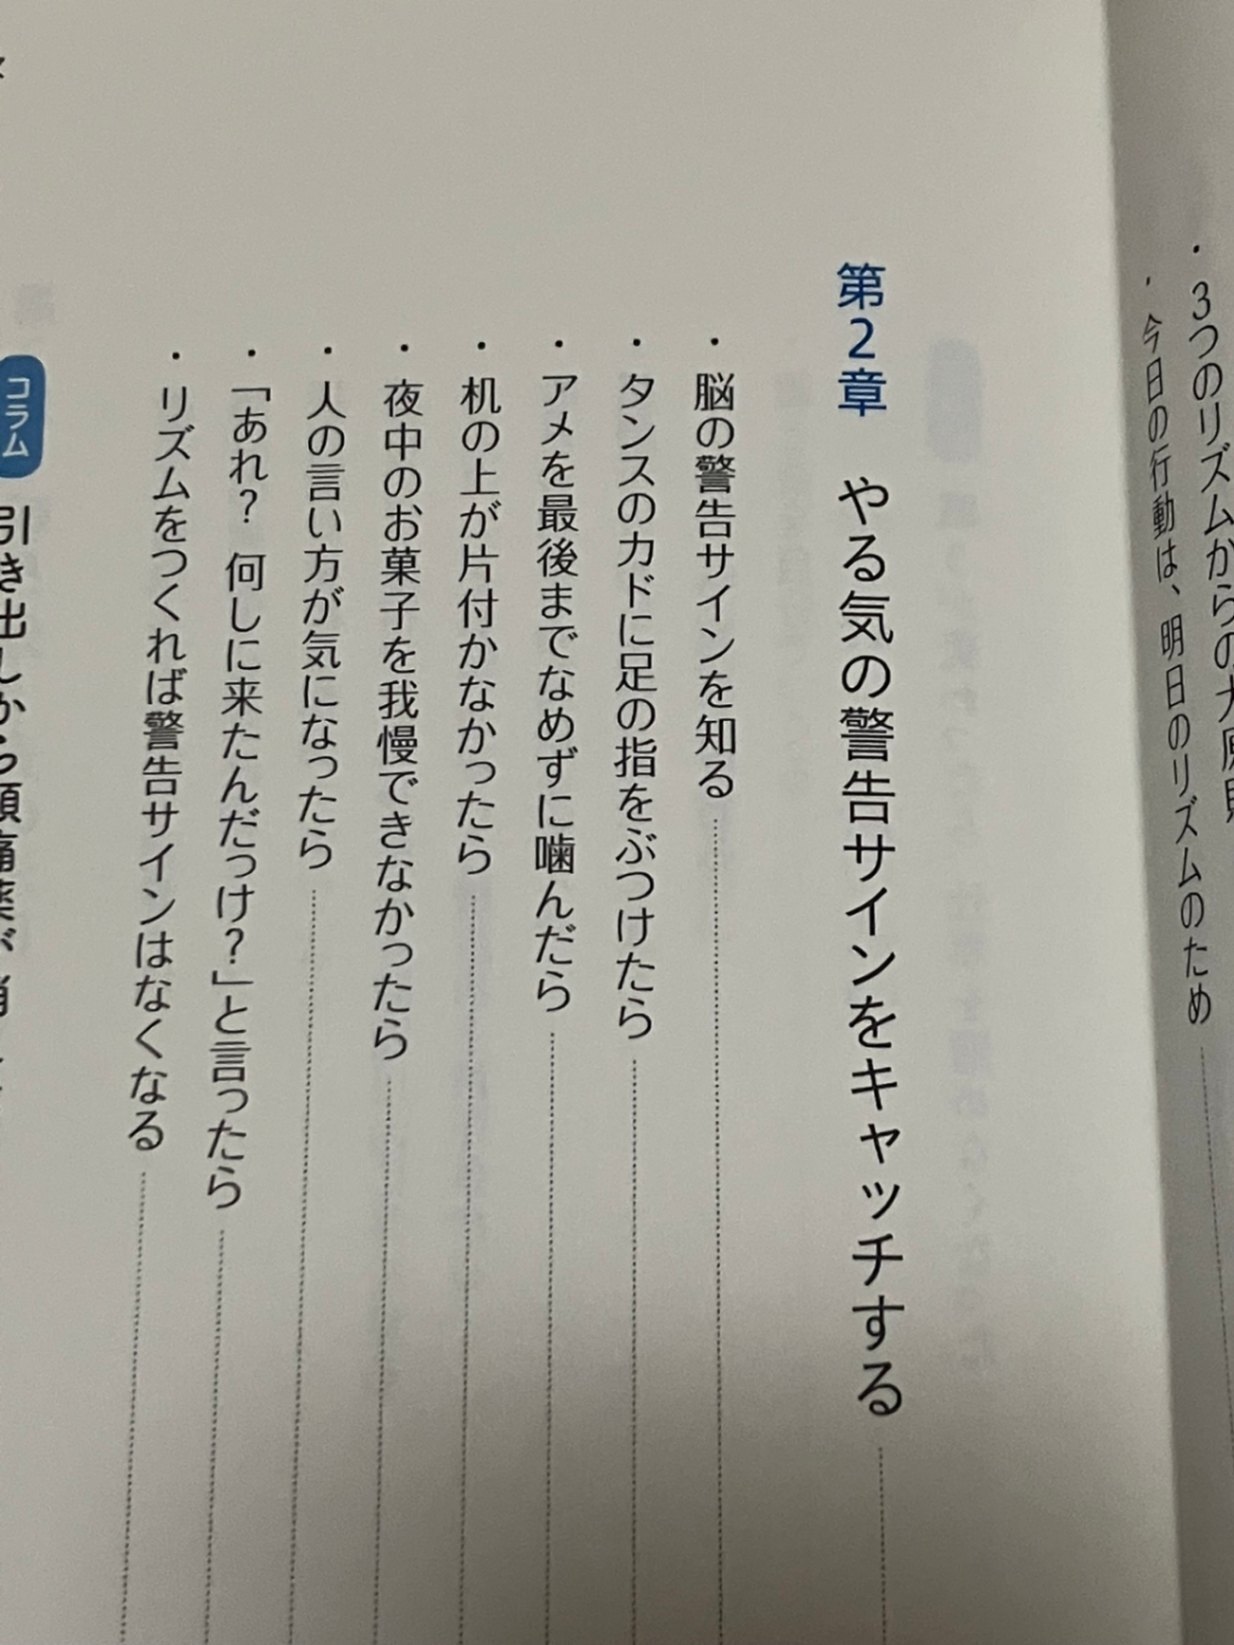 ・3つのリズムからの大原則
・今日の行動は、明日のリズムのため
第2章 やる気の警告サインをキャッチする
・脳の警告サインを知る
・タンスのカドに足の指をぶつけたら
・アメを最後までなめずに噛んだら
・机の上が片付かなかったら
・夜中のお菓子を我慢できなかったら
・人の言い方が気になったら
・「あれ? 何しに来たんだっけ?」と言ったら
・リズムをつくれば警告サインはなくなる
コラム 引き出しから頭痛薬が消